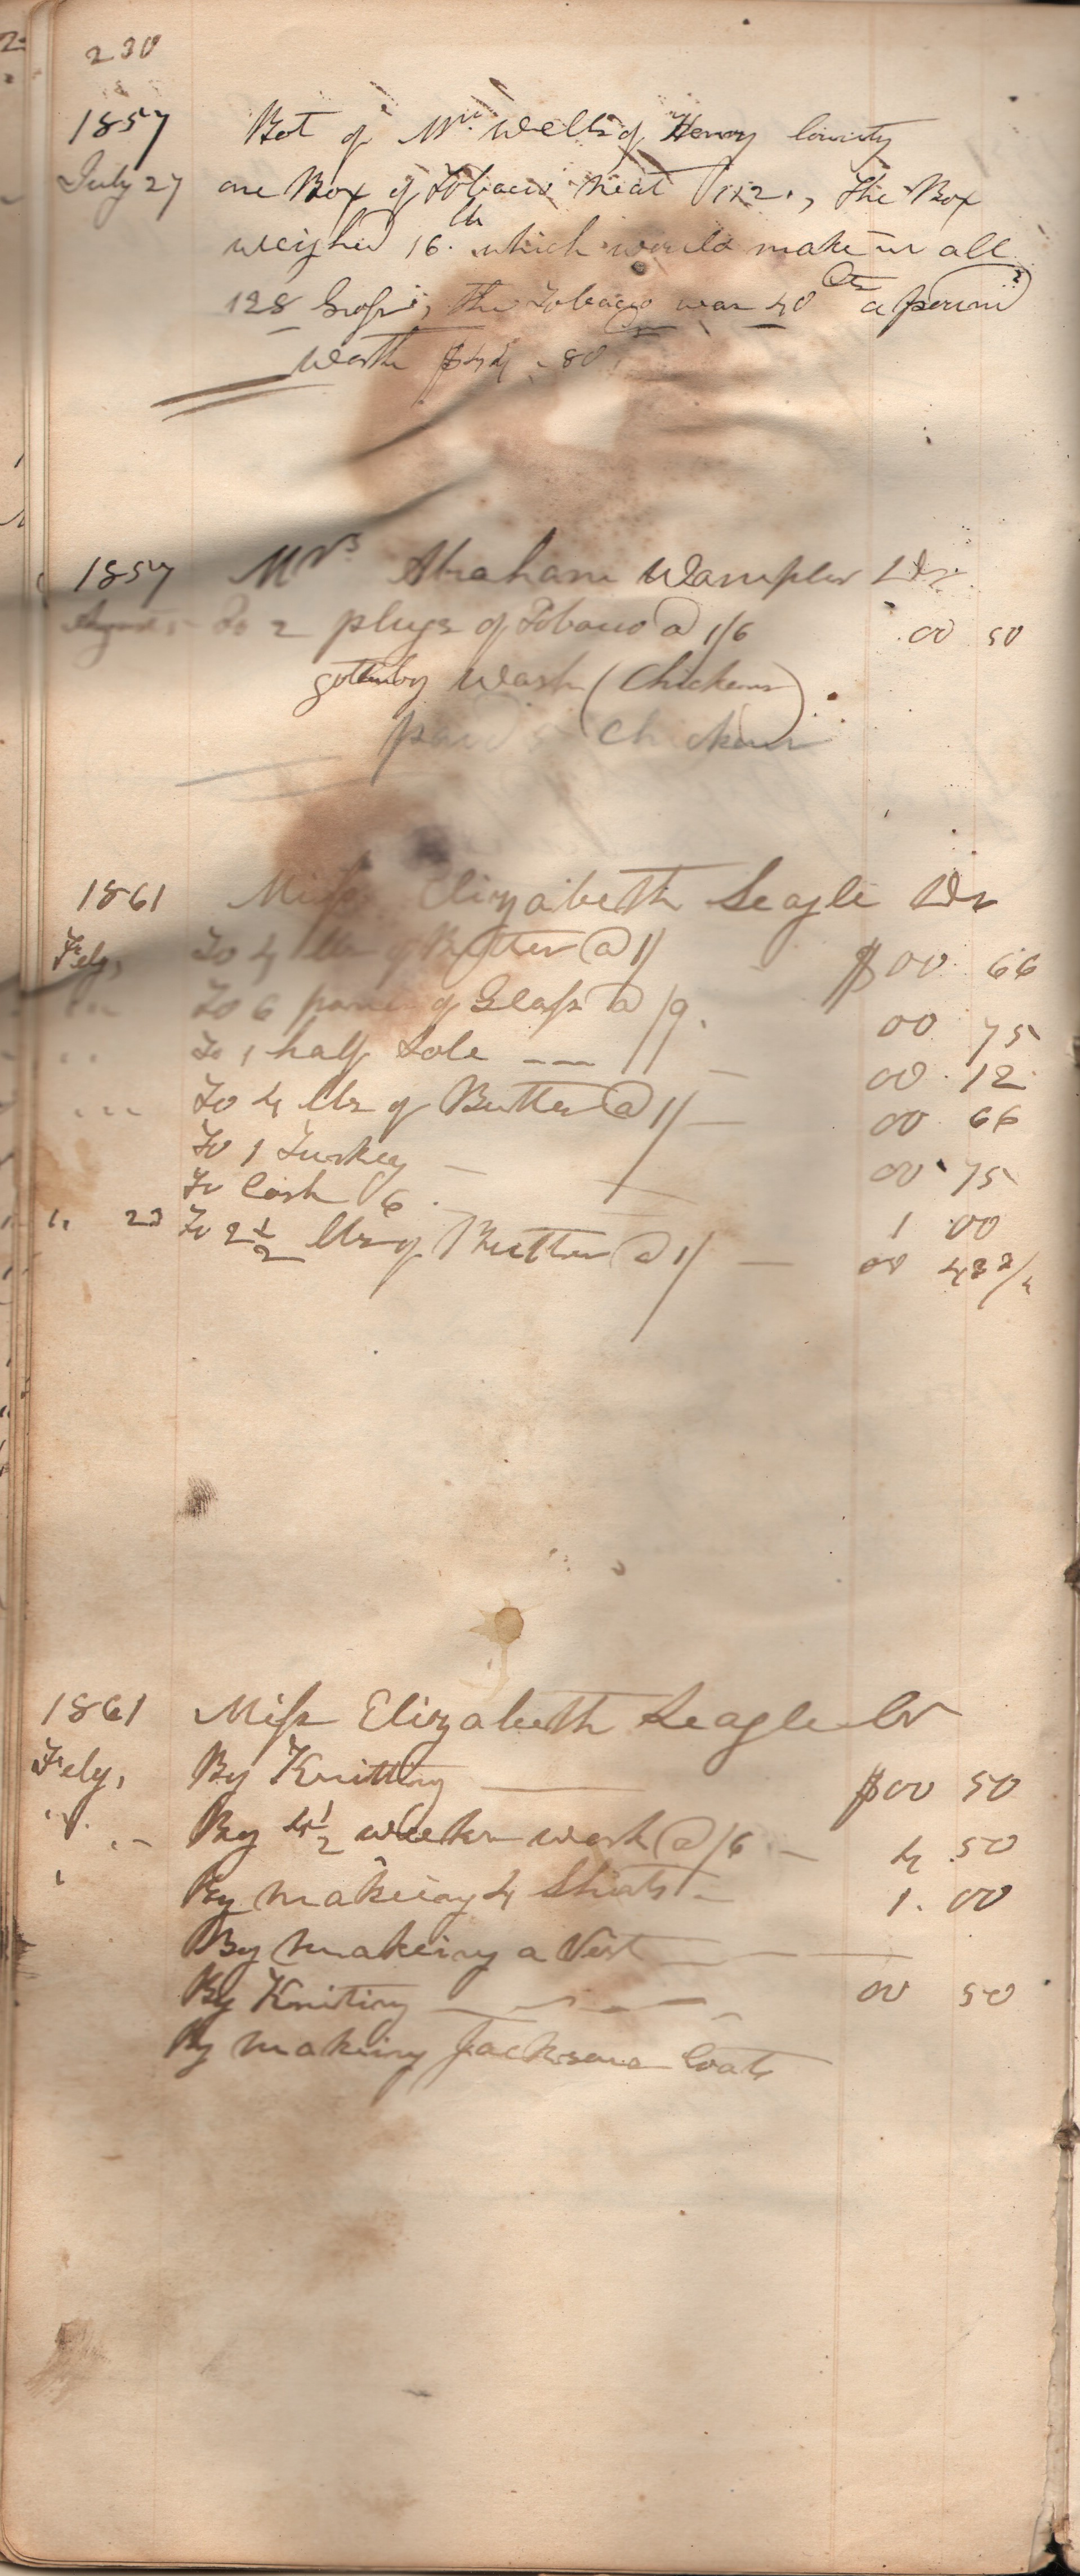 230
1857 Bot of Mr. Wells of Henry County
July 27 one Box of Tobacco neat 112., the Box
weighed 16. lb which would make in all
128 Gross; the Tobacco was 40 Cts a pound
worth $44 . 80
1857 Mrs Abraham Wampler Dr.
August To 2 plugs of Tobacco @ 1/6 00 50
Wash (Chickens)
paid Chickens
1861 Miss Elizabeth Seagle Dr
Feby, To 4 lbs of Butter @ 1/ $00 66
To 6 panes of Glass @ /9. 00 75
To 1 half Sole --- 00 12
To 4 lbs of Butter @ 1/ 00 66
To 1 Turkey 00 75
To Cash 6 1 00
" 23 To 2 1/2 lbs of Butter @ 1/ 00 43 3/4
1861 Miss Elizabeth Seagle Cr
Feby, By Knitting $00 50
By 4 1/2 weeks work @ /6 4 50
By makeing 4 Shirts 1. 00
By makeing a Vest
By Kniting 00 50
By making Jacksons Coats